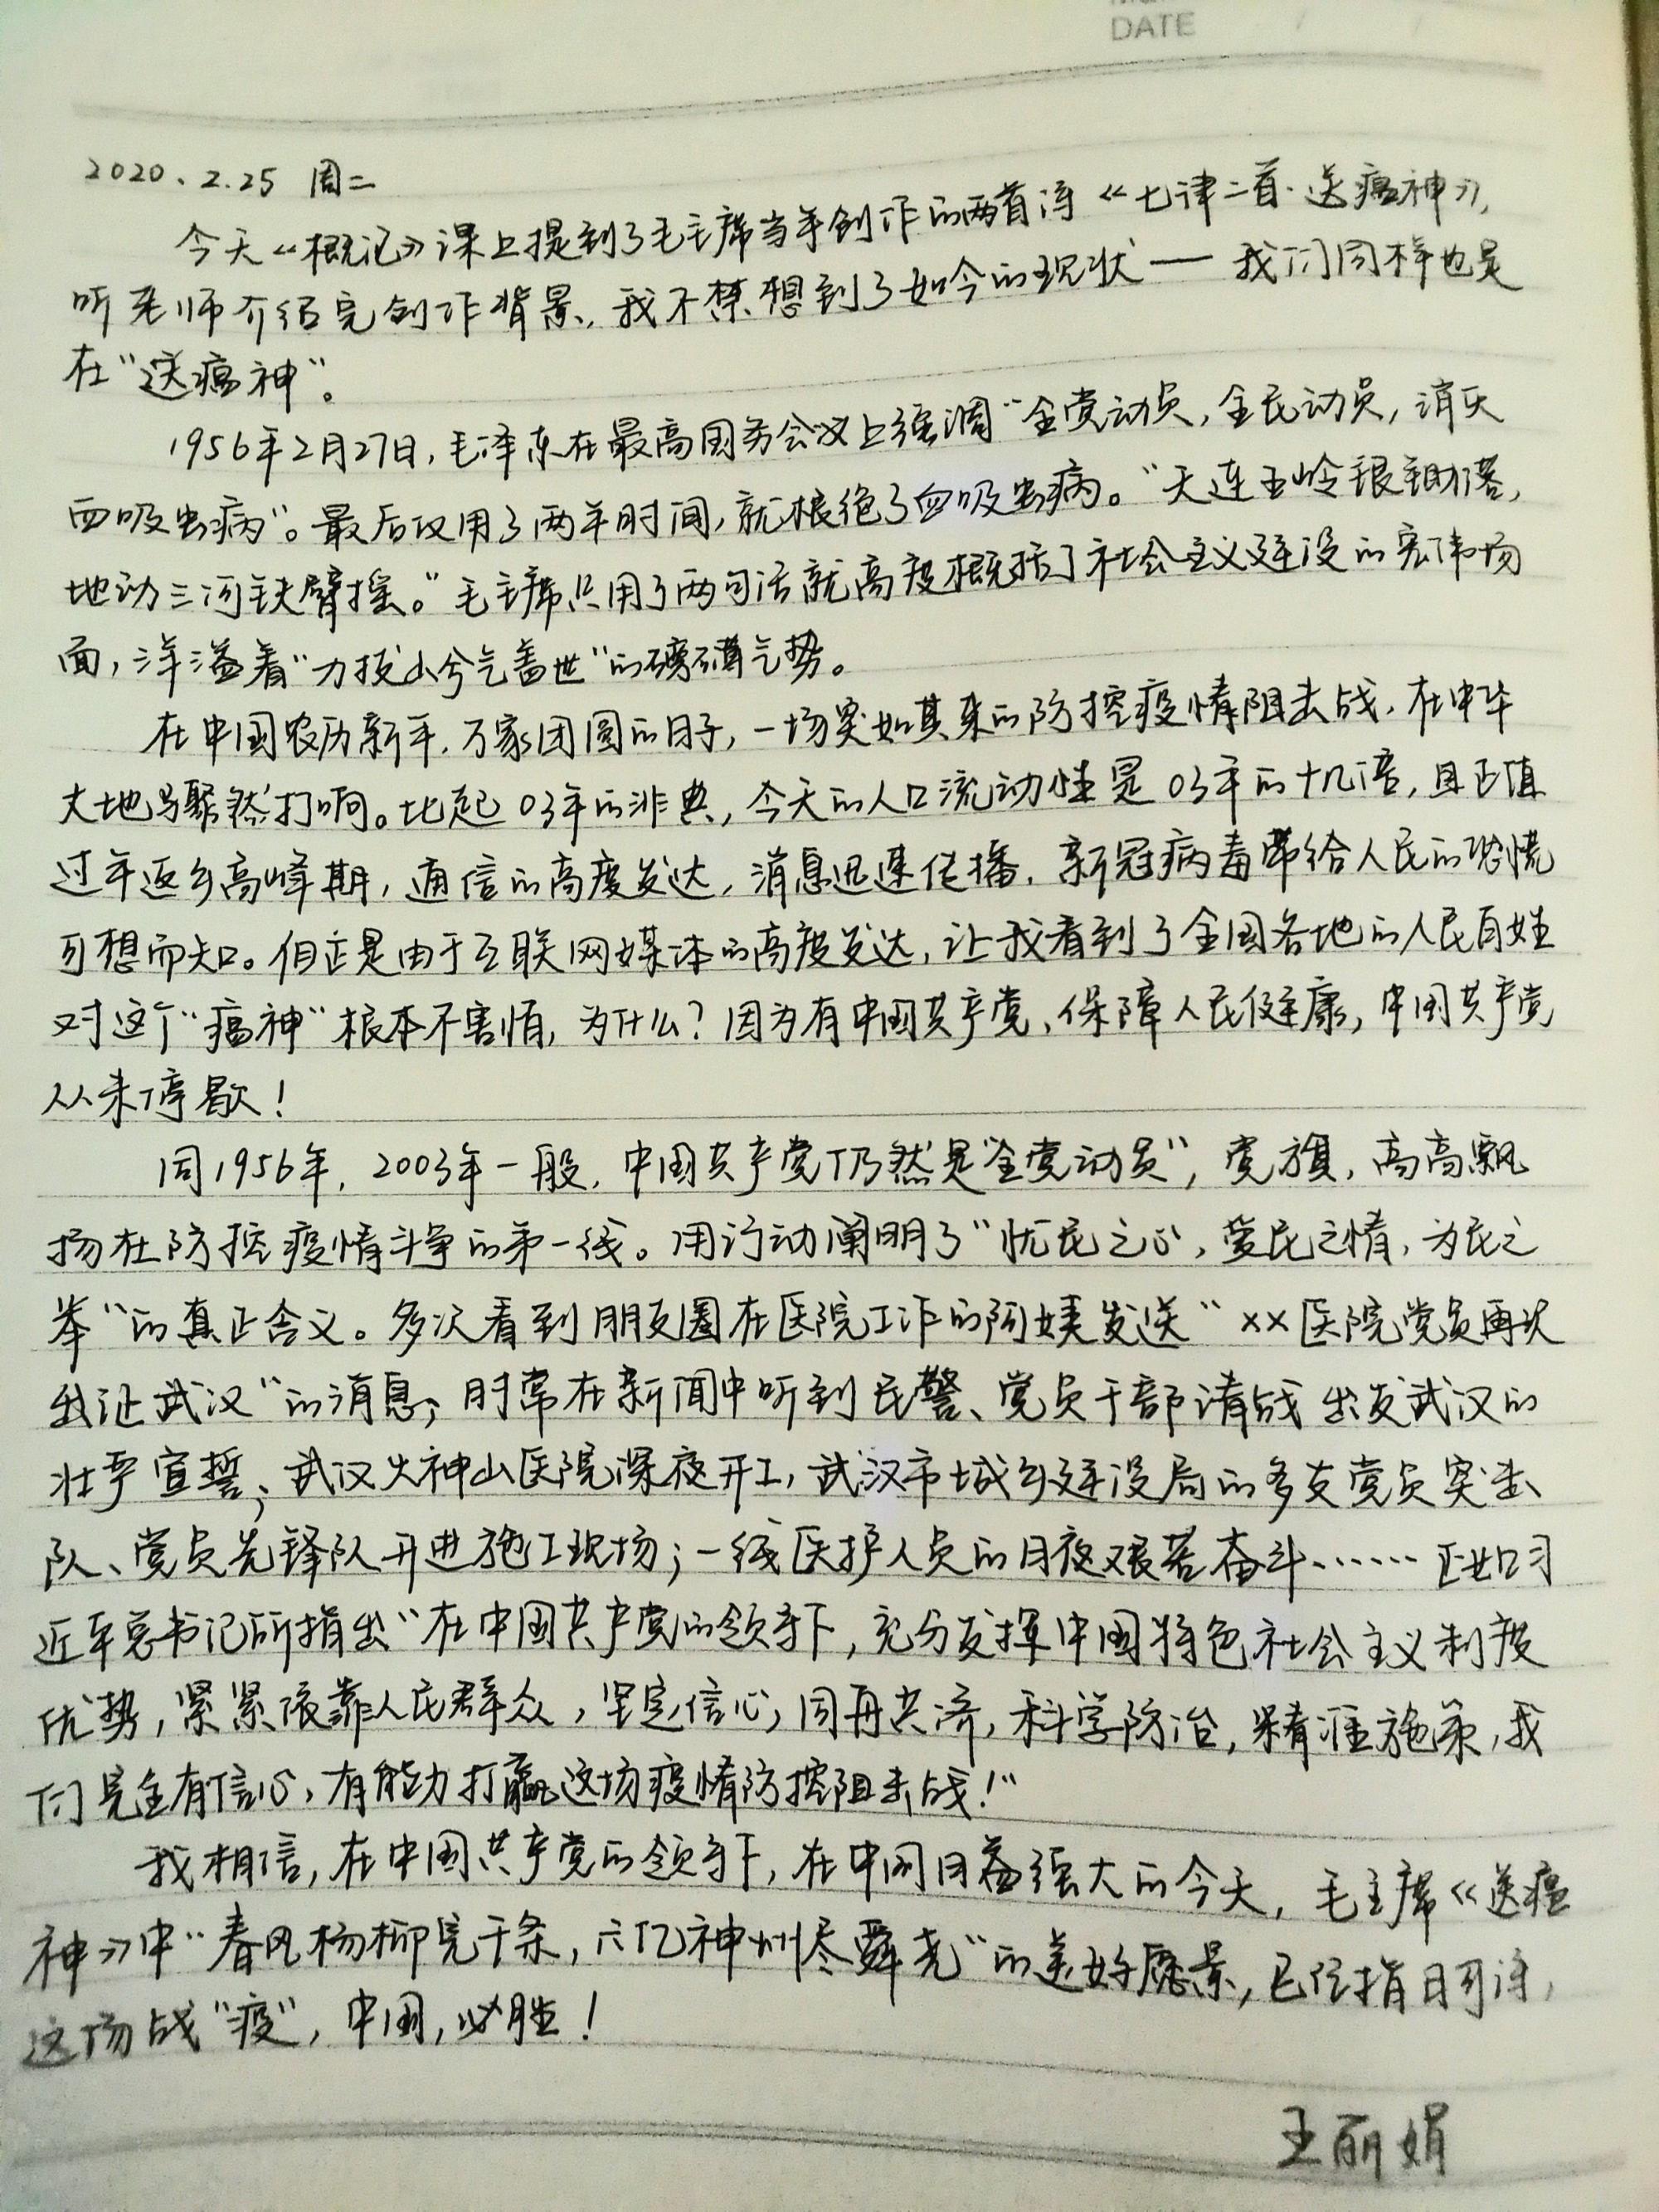 DATE
2020、2.25 周二
今天《概论》课上提到了毛主席当年创作的两首诗《七律二首·送瘟神》,
听老师介绍完创作背景,我不禁想到了如今的现状——我们同样也是
在“送瘟神”。
1956年2月27日,毛泽东在最高国务会议上强调“全党动员,全民动员,消灭
血吸虫病”。最后仅用了两年时间,就根绝了血吸虫病。“天连五岭银锄落,
地动三河铁臂摇。”毛主席只用了两句话就高度概括了社会主义建设的宏伟场
面,洋溢着“力拔山兮气盖世”的磅礴气势。
在中国农历新年,万家团圆的日子,一场突如其来的防控疫情阻击战,在中华
大地骤然打响。比起03年的非典,今天的人口流动性是03年的十几倍,且正值
过年返乡高峰期,通信的高度发达,消息迅速传播,新冠病毒带给人民的恐慌
可想而知。但正是由于互联网媒体的高度发达,让我看到了全国各地的人民百姓
对这个“瘟神”根本不害怕,为什么?因为有中国共产党,保障人民健康,中国共产党
从未停歇!
同1956年,2003年一般,中国共产党仍然是“全党动员”,党旗,高高飘
扬在防控疫情斗争的第一线。用行动阐明了“忧民之心,爱民之情,为民之
举”的真正含义。多次看到朋友圈在医院工作的阿姨发送“××医院党员再次
出征武汉”的消息;时常在新闻中听到民警、党员干部请战出发武汉的
壮严宣誓;武汉火神山医院深夜开工,武汉市城乡建设局的多支党员突击
队、党员先锋队开进施工现场;一线医护人员的日夜艰苦奋斗……正如习
近平总书记所指出“在中国共产党的领导下,充分发挥中国特色社会主义制度
优势,紧紧依靠人民群众,坚定信心,同舟共济,科学防治,精准施策,我
们完全有信心,有能力打赢这场疫情防控阻击战!”
我相信,在中国共产党的领导下,在中国日益强大的今天,毛主席《送瘟
神》中“春风杨柳万千条,六亿神州尽舜尧”的美好愿景,已经指日可待,
这场战“疫”,中国,必胜!
王丽娟